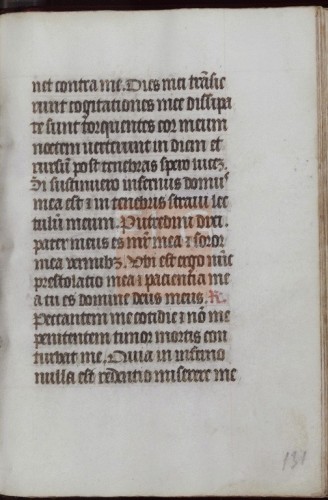 net contra me. Dies mei trāsie
runt cogitationes mee dissipa
te sunt torquentes cor meum
noctem verterunt in diem et
rursū post tenebras spero lucēꝫ.
Si sustinuero infernus domusꝰ
mea est ⁊ in tenebris stravi lec
tulū meum. Putredini dixi.
pater meus es mr̄ mea ⁊ soror
mea vermibꝫ. Ubi est ergo nūc
prestolatio mea ⁊ paciencia me
a tu es domine deus meus. R.
Peccantem me cotidie ⁊ nō me
penitentem timor mortis con
turbat me. Quia in inferno
nulla est redentio miserere me
131